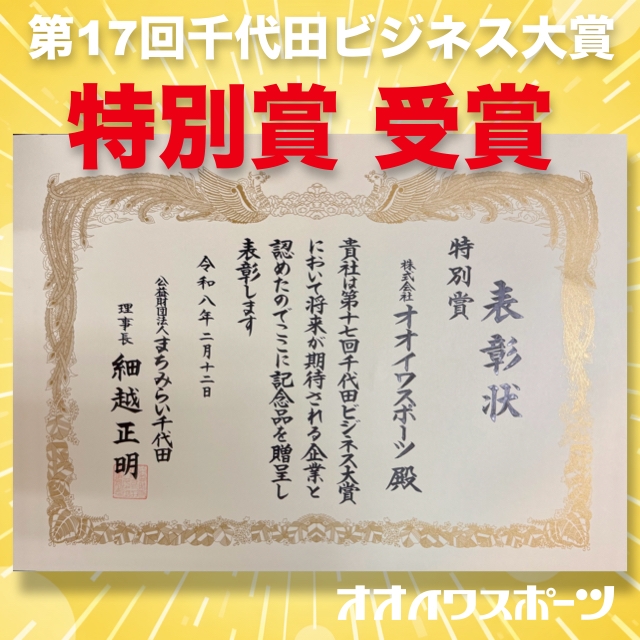 第17回千代田ビジネス大賞
特別賞 受賞
表彰状
特別賞
株式会社 オオイワスポーツ 殿
貴社は第十七回千代田ビジネス大賞
において将来が期待される企業と
認めたのでここに記念品を贈呈し
表彰します
令和八年二月十二日
公益財団法人まちみらい千代田
理事長 細越正明
オオイワスポーツ